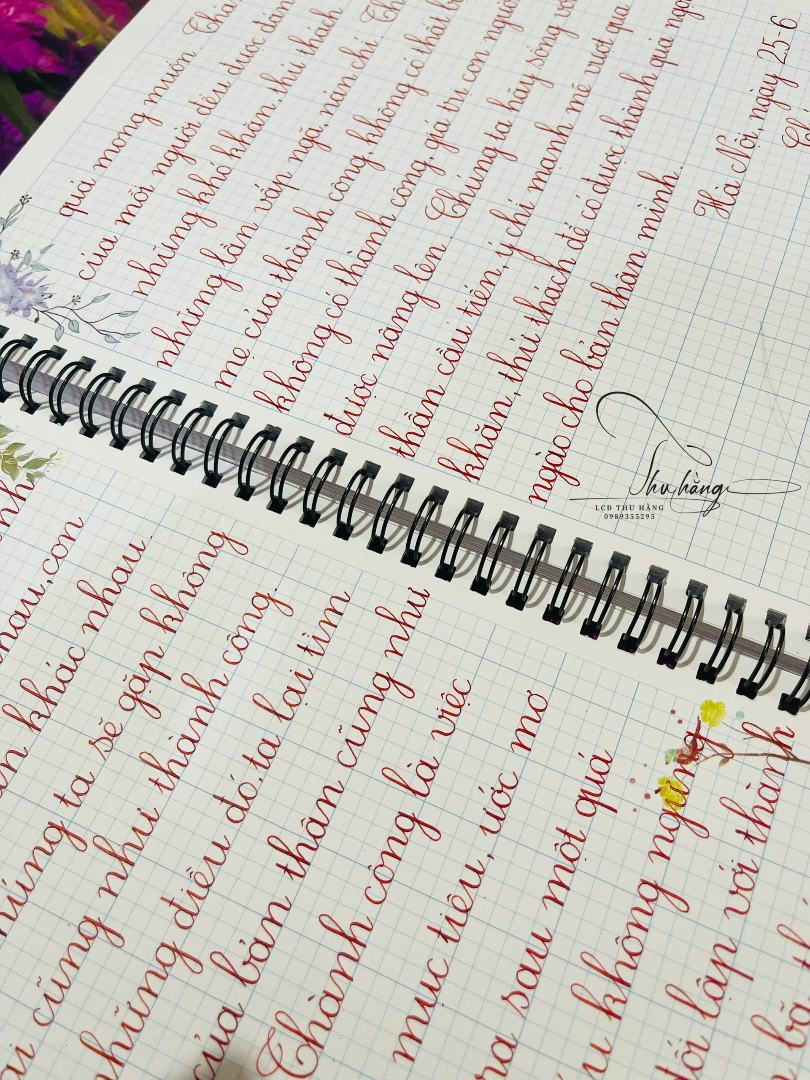 quả mong muốn. Thà
của mỗi người đều được dán
những khó khăn, thử thách.
những lần vấp ngã, nản chí. Th
mẹ của thành công không có thất b
không có thành công, giá trị con ngườ
được nâng lên. Chúng ta hãy sống vớ
thần cầu tiến, ý chí mạnh mẽ vượt qua
khăn, thử thách để có được thành quả ngọ
ngào cho bản thân mình.
Hà Nội, ngày 25-6
Thu hằng
LCĐ THU HẰNG
0989355295
nhau, con
khác nhau.
húng ta sẽ gặp không
cũng như thành công.
những điều đó, ta lại tìm
của bản thân cũng như
Thành công là việc
mục tiêu, ước mơ
ra sau một quá
không ngừng
lập với thành